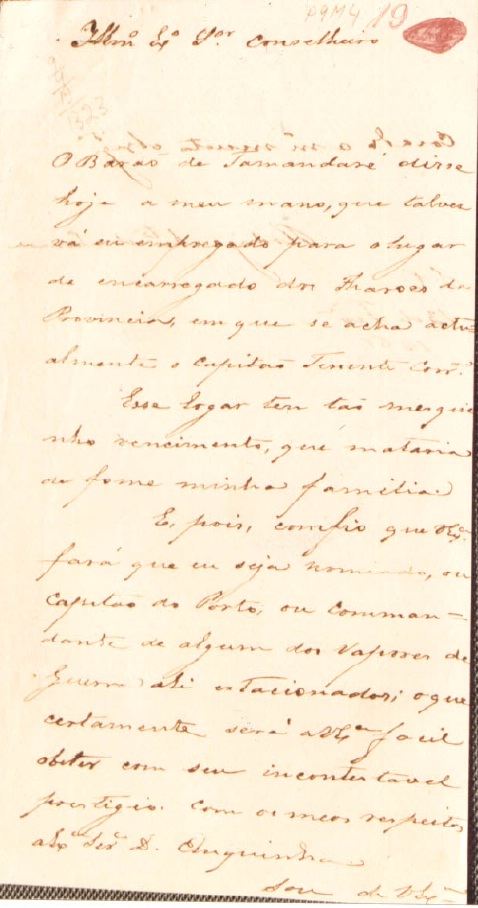 E9M4 19
Illmo Exo Sor Conselheiro
O Barão de Tamandaré disse
hoje a meu mano, que talvez
vá eu empregado para o lugar
de encarregado dos Pharoes da
Provincia, em que se acha actu
almente o Capitão Tenente Corra
Esse logar tem tão mesqui
nho vencimento, que mataria
de fome minha familia.
E, pois, confio que VExa
fará que eu seja nomeado, ou
Capitão do Porto, ou Comman=
dante de algum dos Vapores de
Guerra ali estacionados; o que
certamente será a VExa facil
obter com seu incontestavel
prestigio. Com os meos respeitos
a Exa Sra D.
Sou de VExa